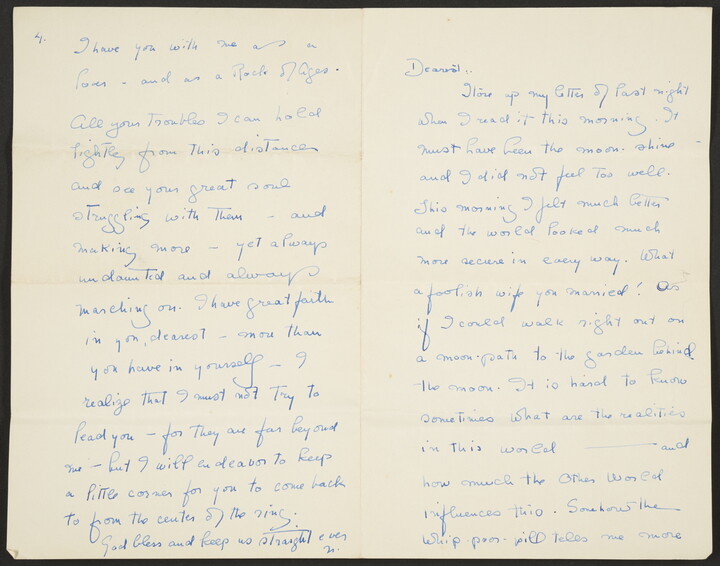 4.
I have you with me as a
lover - and as a Rock of Ages.
All your troubles I can hold
lightly from this distance
and see your great soul
struggling with them - and
making more - yet always
undaunted and always
marching on. I have great faith
in you, dearest - more than
you have in yourself - I
realize that I must not try to
lead you - for they are far beyond
me - but I will endeavor to keep
a little corner for you to come back
to from the center of the ring.
God bless and keep us straight ever
n.
Dearest..
I tore up my letter of last night
when I read it this morning. It
must have been the moon-shine -
and I did not feel too well.
This morning I felt much better
and the world looked much
more secure in every way. What
a foolish wife you married! As
if I could walk right out on
a moon-path to the garden behind
the moon. It is hard to know
sometimes what are the realities
in this world — and
how much the other world
influences this. Somehow the
whip-poor-will tells me more